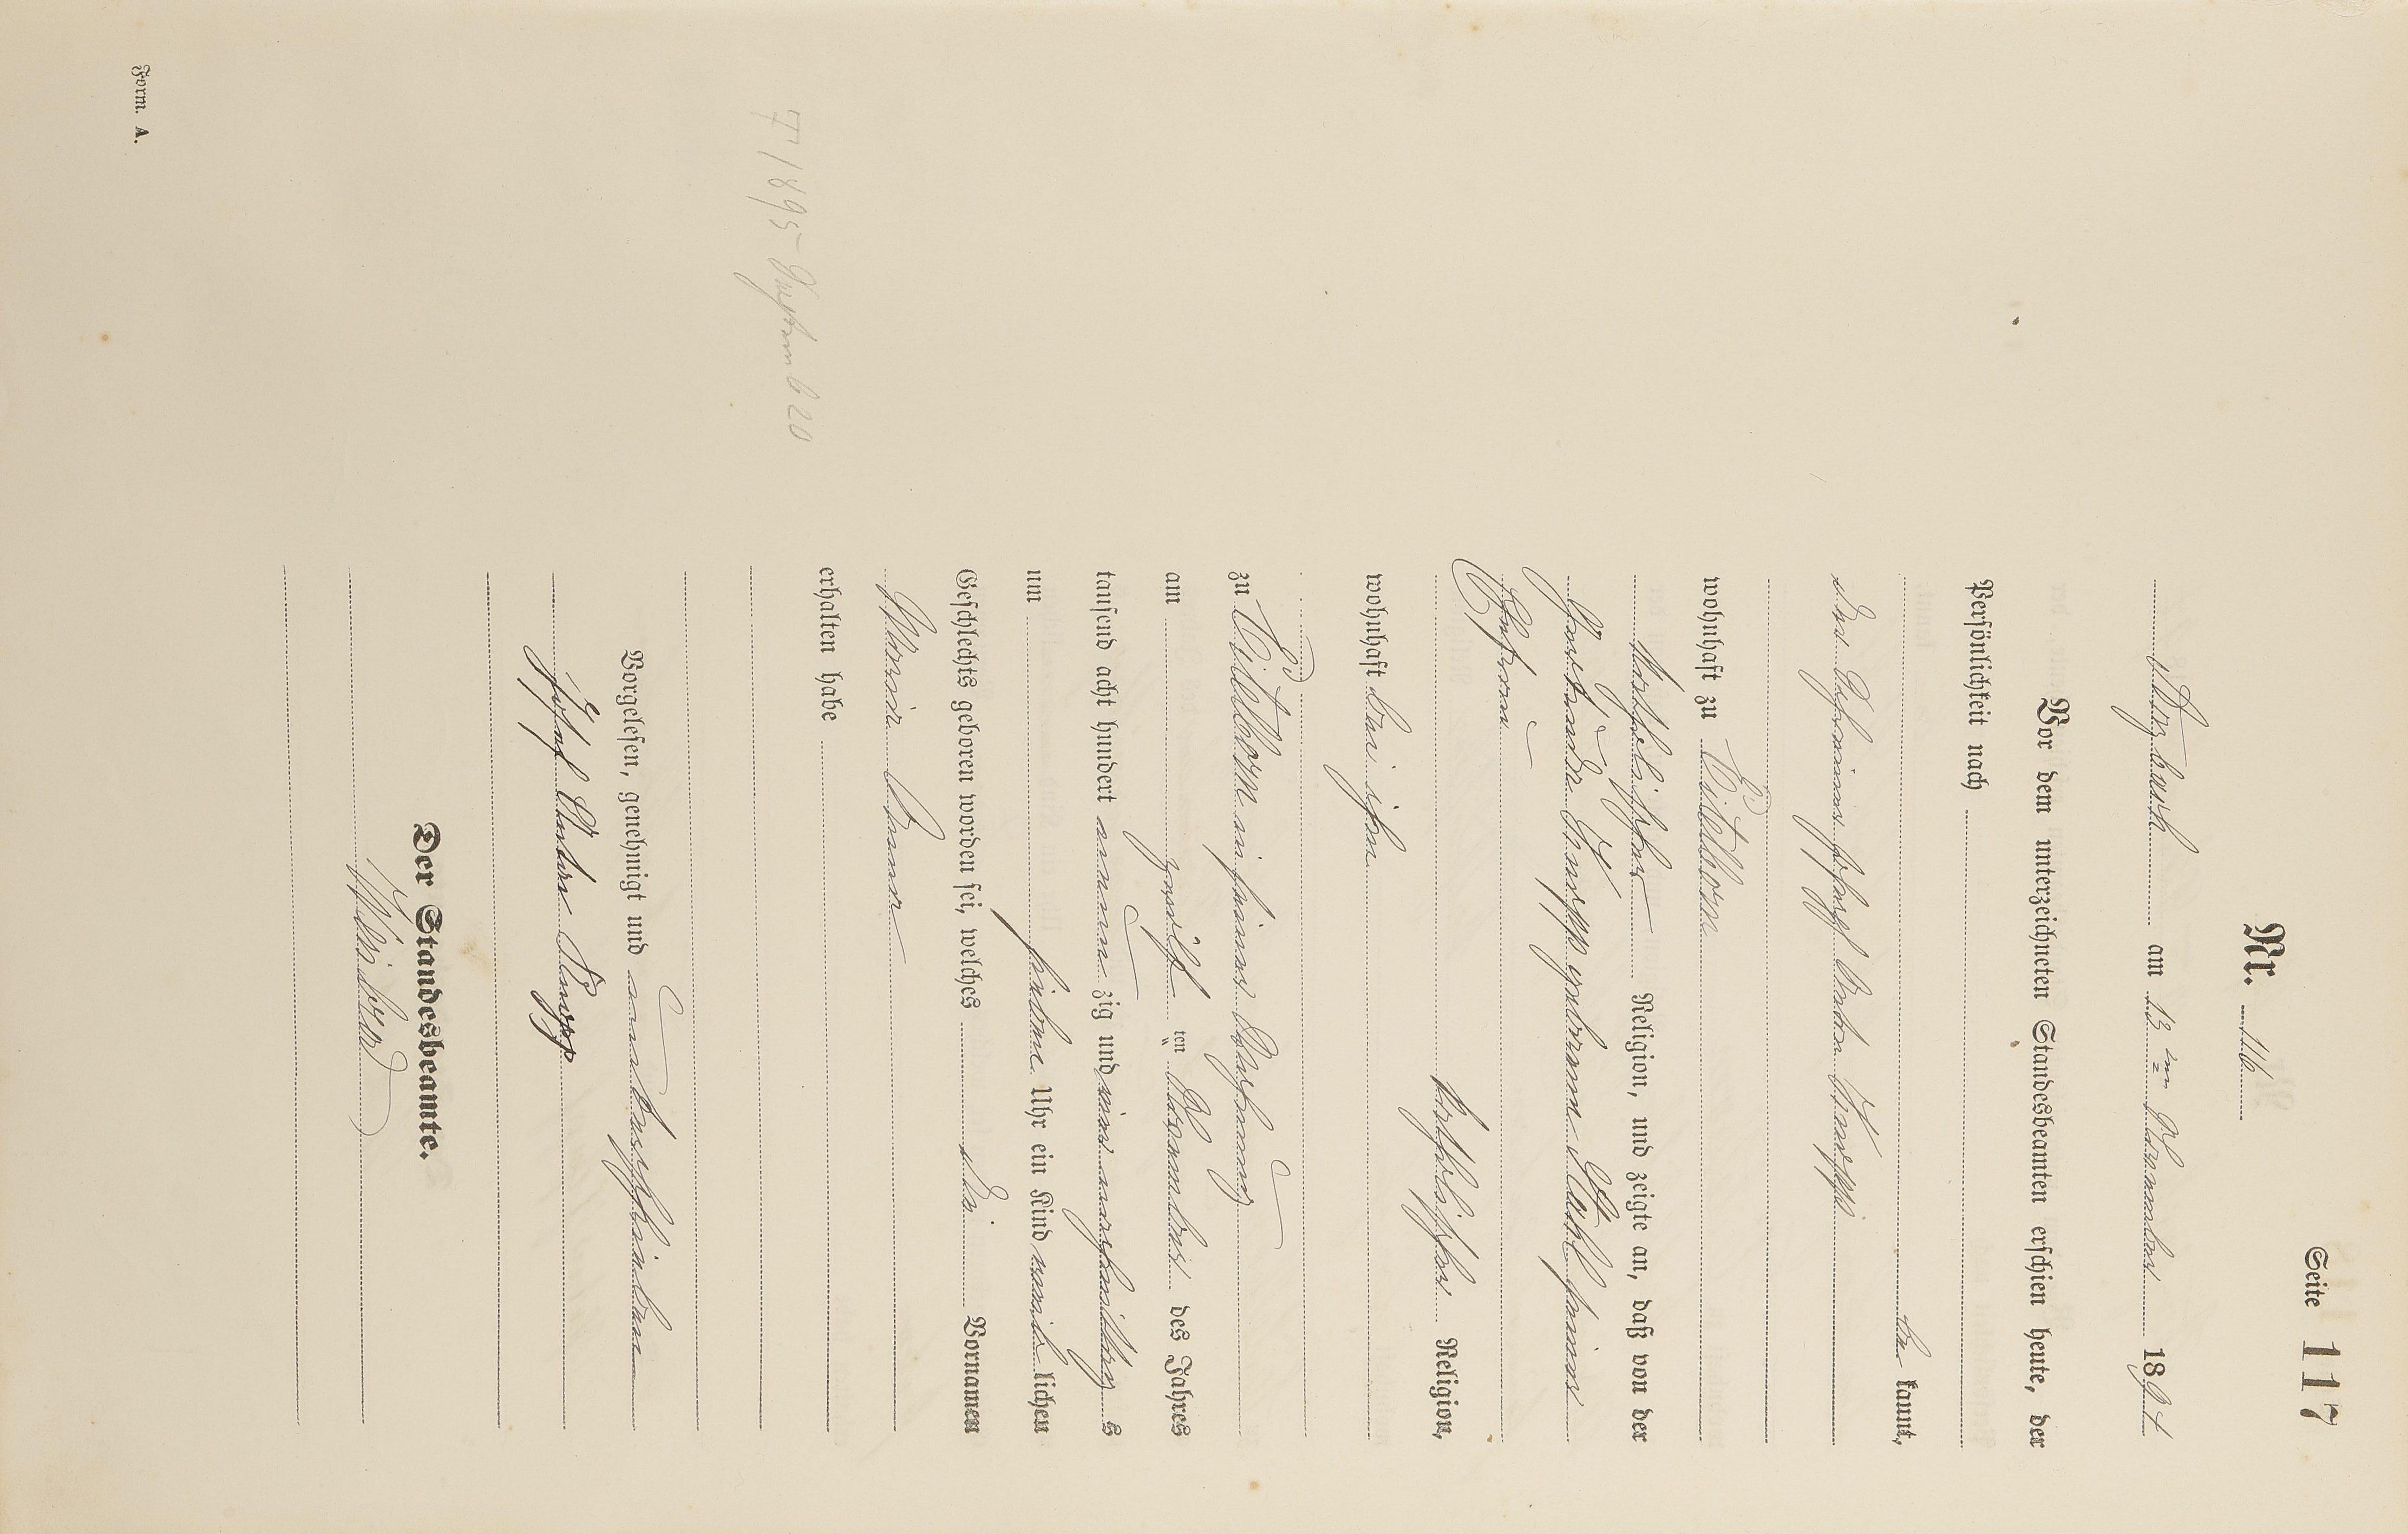 Seite 117
Nr. 116
Arzbach am 13 ten November 1894
Vor dem unterzeichneten Standesbeamten erschien heute, der
Persönlichkeit nach
be kannt,
der
Joseph Anton Knopp
wohnhaft zu Eitelborn
katholischer Religion, und zeigte an, daß von der
Knopp geborene seiner
Ehefrau
katholischer Religion,
wohnhaft bei ihm
zu Eitelborn in seiner Behausung
am zwölf ten November des Jahres
tausend acht hundert neun zig und vier nachmittag s
um sieben Uhr ein Kind weib lichen
Geschlechts geboren worden sei, welches die Vornamen
Maria Anna
erhalten habe
Vorgelesen, genehmigt und unterschrieben
Josef Anton Knopp
Der Standesbeamte.
Weisbrod
† 1895 Septemb 20
Form. A.